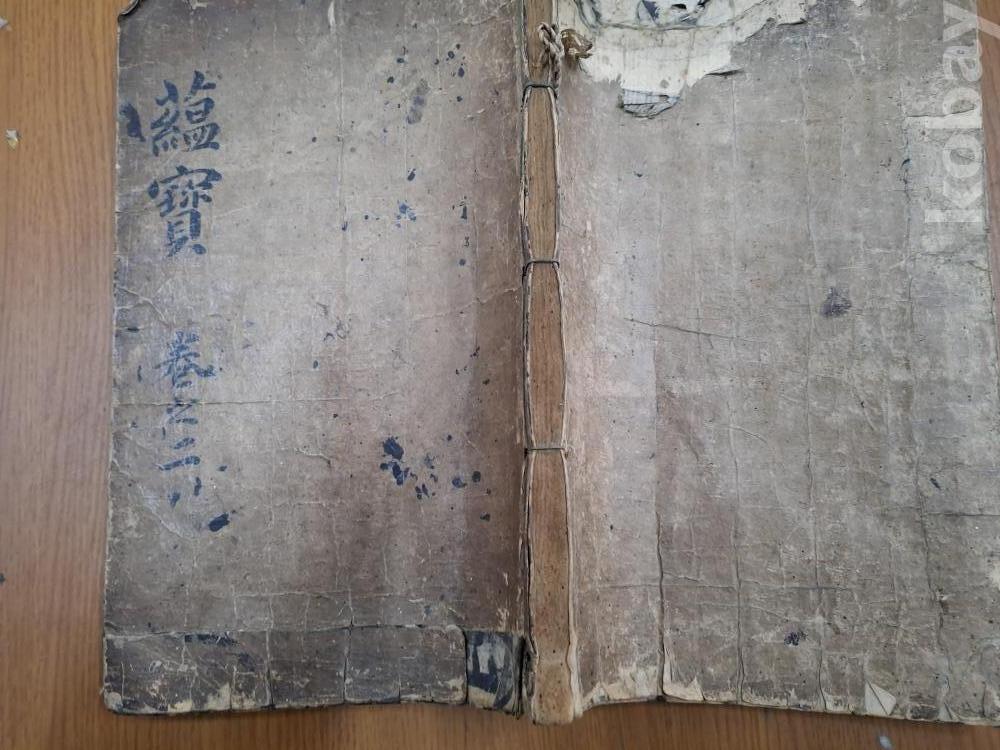 蘊寶 卷之二
kobay